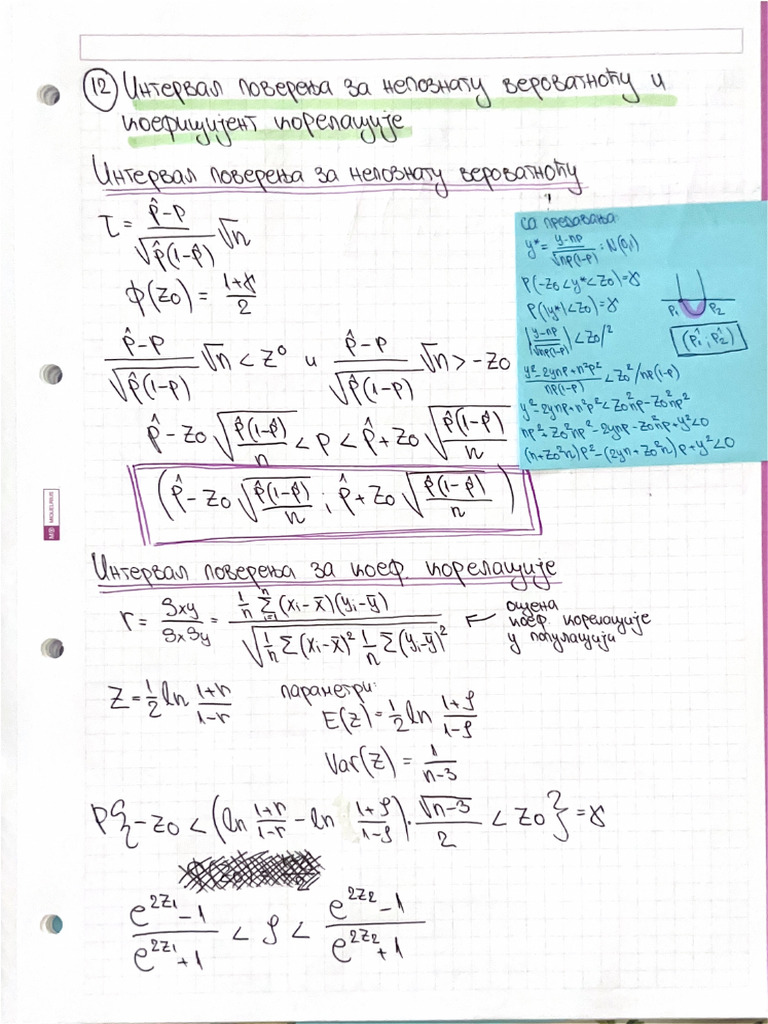 12 Интервал поверења за непознату вероватноћу и
коефицијент корелације
Интервал поверења за непознату вероватноћу
τ = (p̂-p)/√(p̂(1-p̂)) √n
ϕ(z0) = (1+γ)/2
(p̂-p)/√(p̂(1-p)) √n < z⁰ и (p̂-p)/√(p̂(1-p)) √n > -z0
p̂ - z0 √(p̂(1-p̂)/n) < p < p̂ + z0 √(p̂(1-p̂)/n)
(p̂ - z0 √(p̂(1-p̂)/n) ; p̂ + z0 √(p̂(1-p̂)/n))
са предавања:
y* = (y-np)/√(np(1-p)) : N(0,1)
P(-z0 < y* < z0) = γ
P(|y*| < z0) = γ
|(y-np)/√(np(1-p))| < z0 /²
p1 p2
(p̂1 ; p̂2)
(y²-2ynp+n²p²)/(np(1-p)) < z0² / np(1-p)
y²-2ynp+n²p² < z0²np - z0²np²
np²+z0²np²-2ynp-z0²np+y²<0
(n+z0²n)p²-(2yn+z0²n)p+y²<0
MIQUELRIUS
Интервал поверења за коеф. корелације
r = Sxy/(Sx Sy) = (1/n Σ(i=1, n) (xi-x̄)(yi-ȳ))/√(1/n Σ(xi-x̄)² 1/n Σ(yi-ȳ)²) ← оцена
коеф. корелације
у популацији
z = 1/2 ln (1+r)/(1-r) параметри:
E(z) = 1/2 ln (1+ρ)/(1-ρ)
Var(z) = 1/(n-3)
P{-z0 < (ln (1+r)/(1-r) - ln (1+ρ)/(1-ρ)) · √(n-3)/2 < z0} = γ
(e^(2z1)-1)/(e^(2z1)+1) < ρ < (e^(2z2)-1)/(e^(2z2)+1)